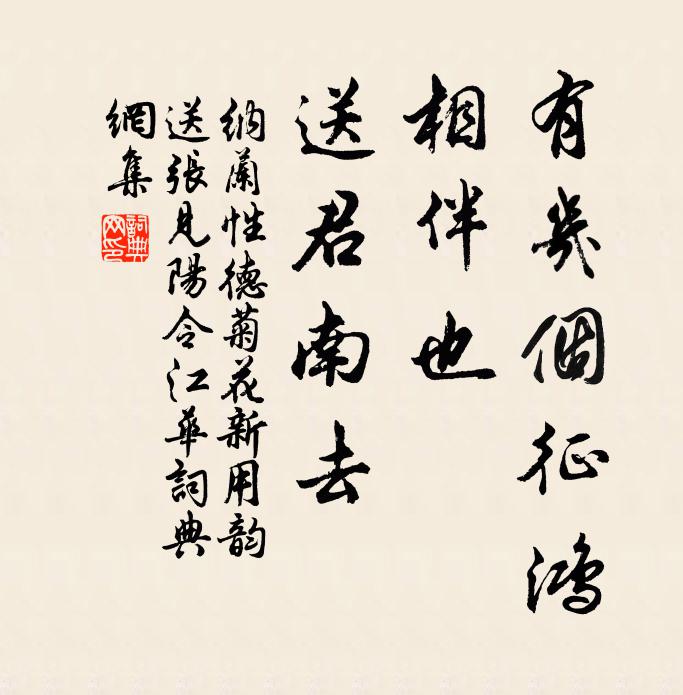 有幾個征鴻
相伴也
送君南去
納蘭性德菊花新用韵
送張見陽令江華詞典
網集
詞典網印